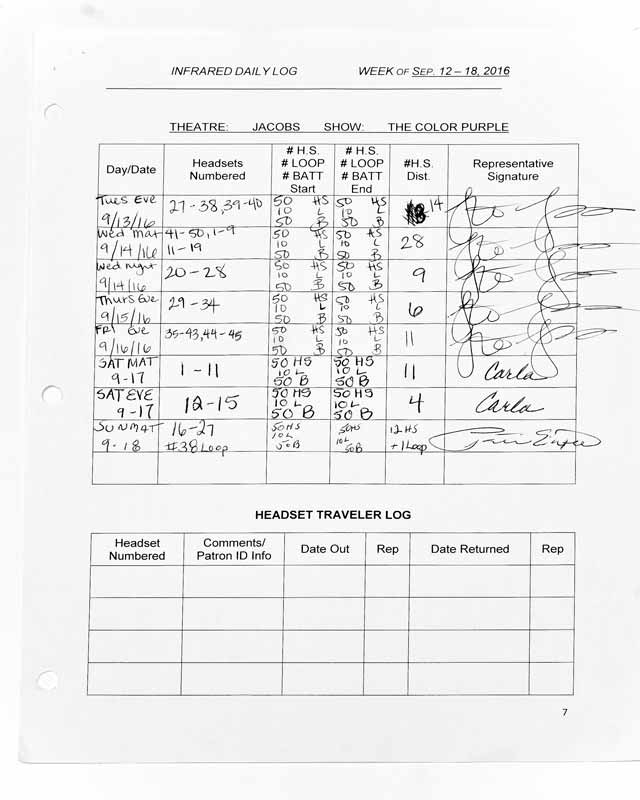 INFRARED DAILY LOG WEEK OF SEP. 12 – 18, 2016
THEATRE: JACOBS SHOW: THE COLOR PURPLE
Day/Date
Headsets
Numbered
# H.S.
# LOOP
# BATT
Start
# H.S.
# LOOP
# BATT
End
#H.S.
Dist.
Representative
Signature
Tues Eve
9/13/16
27-38,39-40
50 HS
10 L
50 B
50 HS
10 L
50 B
14
Wed Mat
9/14/16
41-50,1-9
11-19
50 HS
10 L
50 B
50 HS
10 L
50 B
28
Wed night
9/14/16
20-28
50 HS
10 L
50 B
50 HS
10 L
50 B
9
Thurs Eve
9/15/16
29-34
50 HS
10 L
50 B
50 HS
10 L
50 B
6
Fri Eve
9/16/16
35-43,44-45
50 HS
10 L
50 B
50 HS
10 L
50 B
11
SAT MAT
9-17
1-11
50 HS
10 L
50 B
50 HS
10 L
50 B
11
Carla
SAT EVE
9-17
12-15
50 HS
10 L
50 B
50 HS
10 L
50 B
4
Carla
SUN MAT
9-18
16-27
#38 Loop
50HS
10L
50B
50HS
10L
50B
12 HS
+1 Loop
HEADSET TRAVELER LOG
Headset
Numbered
Comments/
Patron ID Info
Date Out
Rep
Date Returned
Rep
7